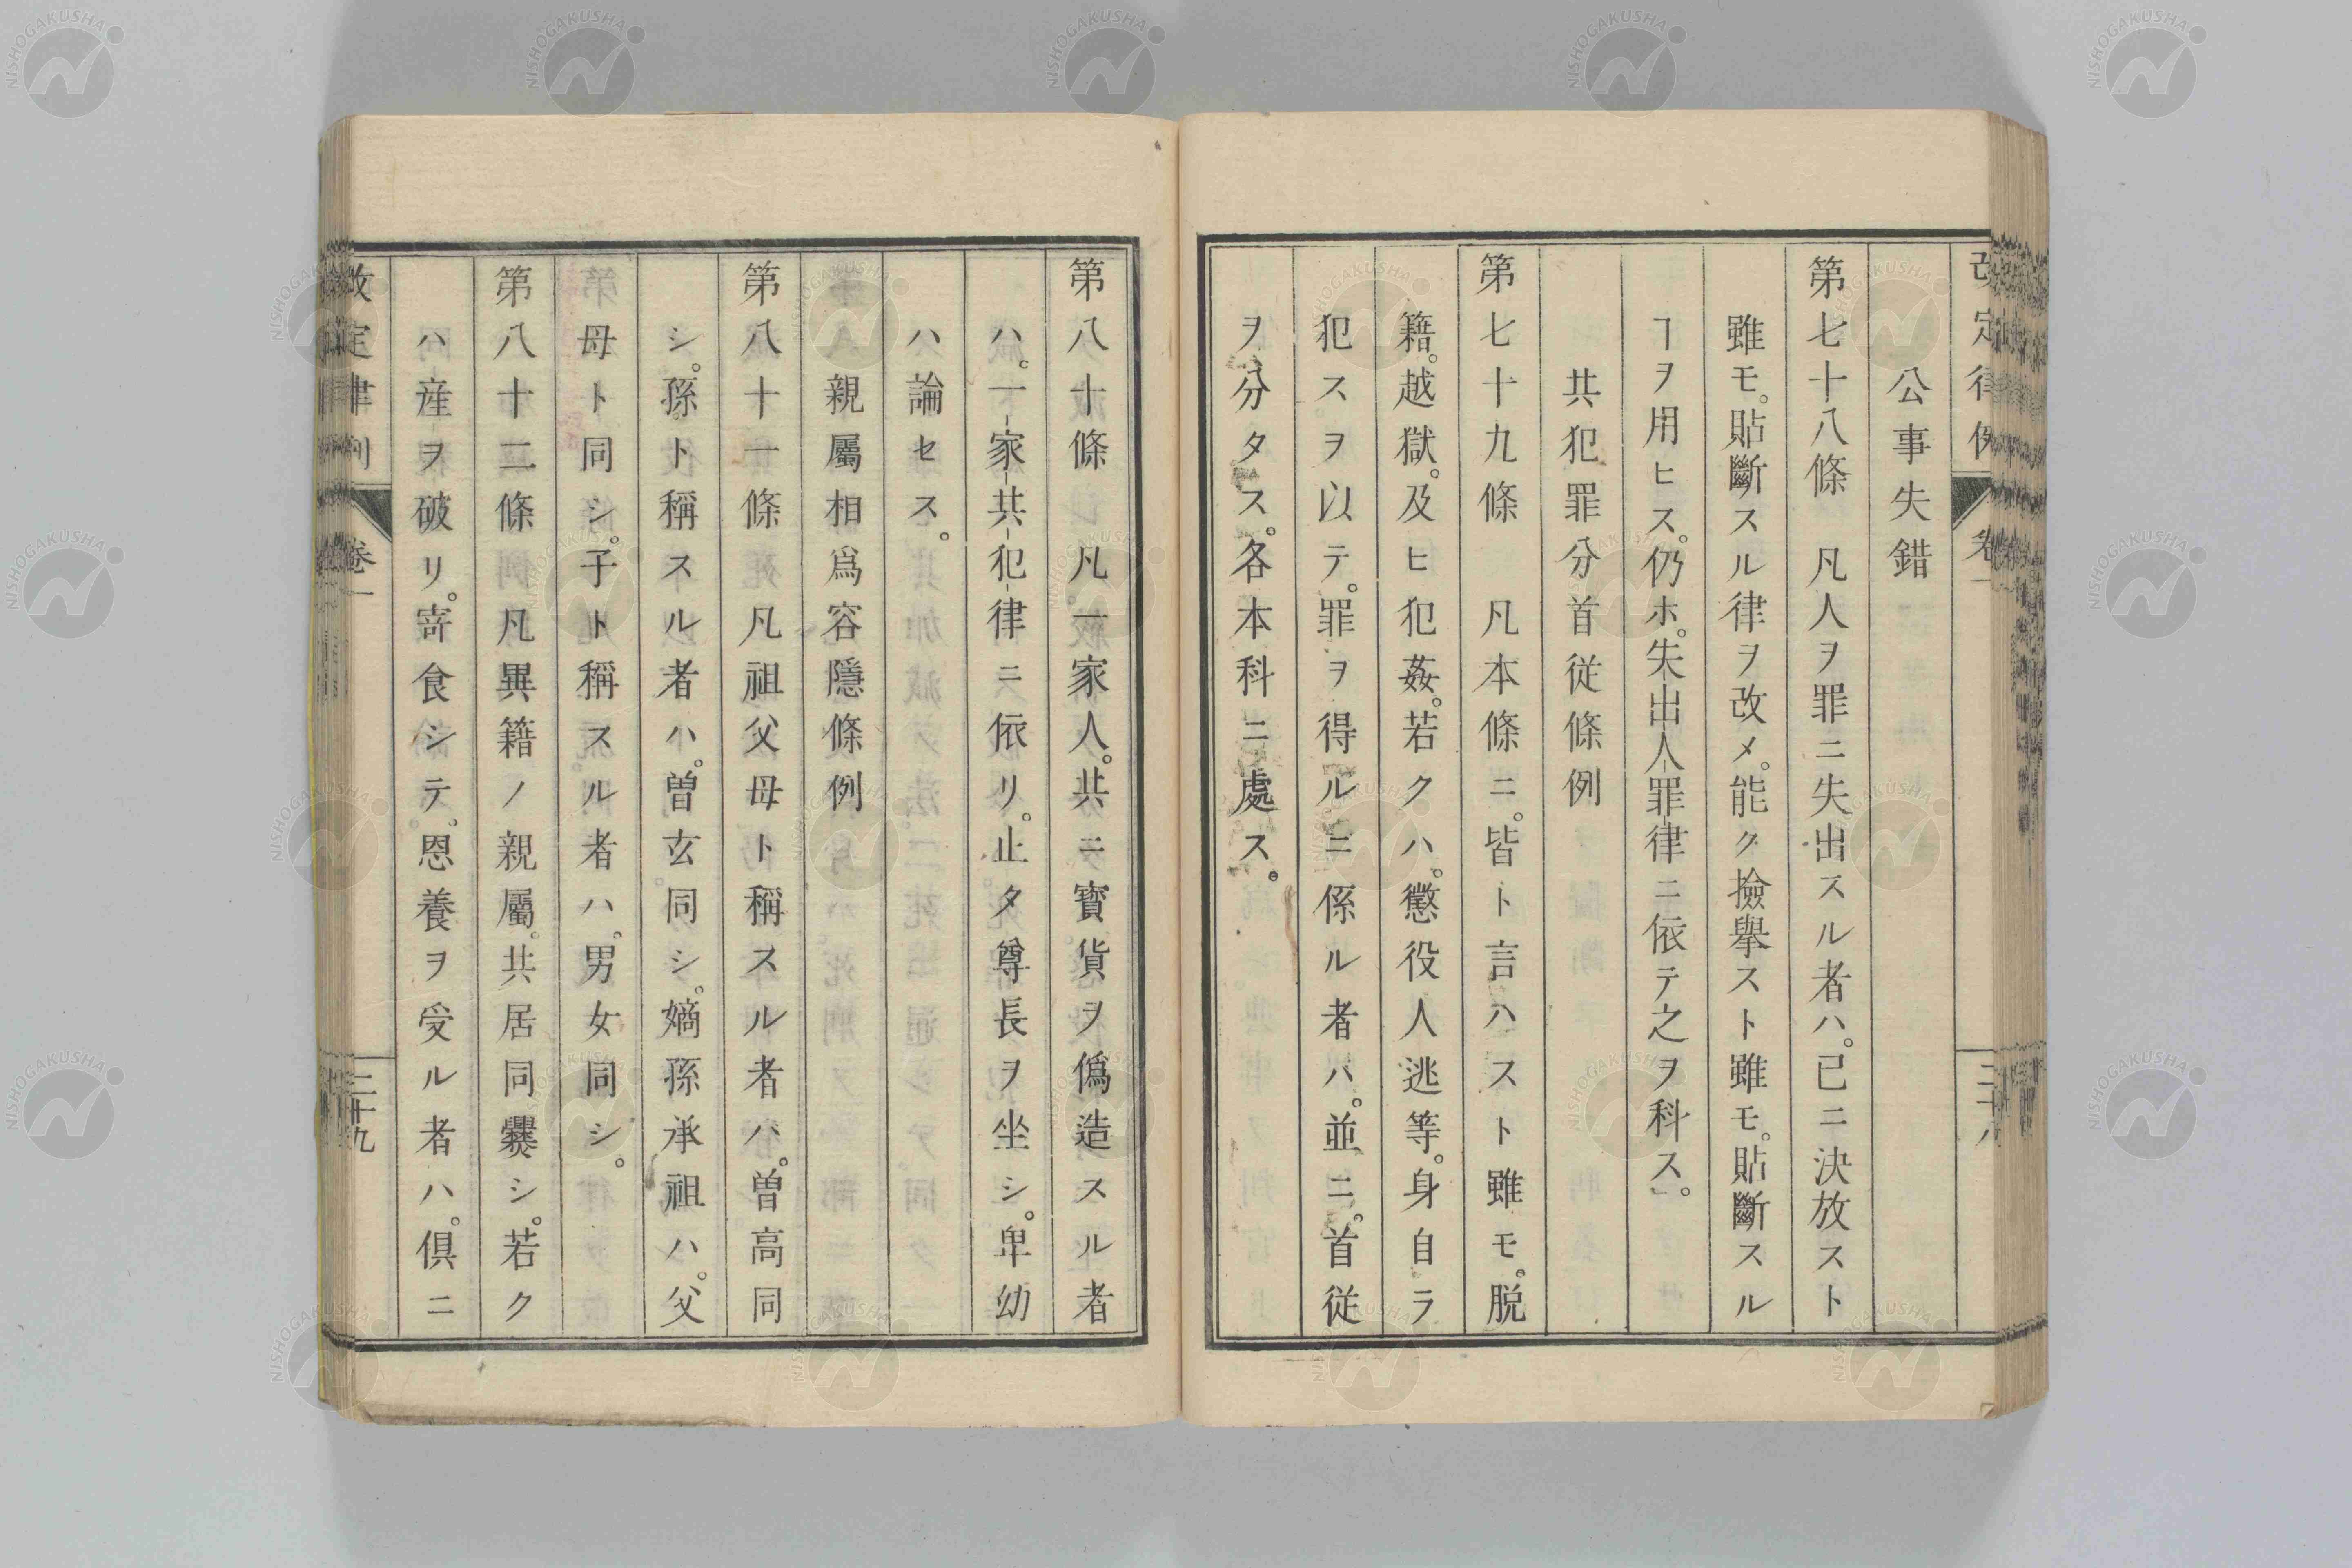 改定律例 卷一
公事失錯
第七十八條 凡人ヲ罪ニ失出スル者ハ。已ニ決放スト
雖モ。貼斷スル律ヲ改メ。能ク撿擧スト雖モ。貼斷スル
ヿヲ用ヒス。仍ホ。失出人罪律ニ依テ之ヲ科ス。
共犯罪分首従條例
第七十九條 凡本條ニ。皆ト言ハスト雖モ。脱
籍。越獄。及ヒ犯姦。若クハ。懲役人逃等。身自ラ
犯スヲ以テ。罪ヲ得ルニ係ル者ハ。並ニ。首従
ヲ分タス。各本科ニ處ス。
第八十條 凡一家人。共ニ寳貨ヲ僞造スル者
ハ。一家共犯律ニ依リ。止タ尊長ヲ坐シ。卑幼
ハ論セス。
親屬相爲容隱條例
第八十一條 凡祖父母ト稱スル者ハ。曽高同
シ。孫ト稱スル者ハ。曽玄同シ。嫡孫承祖ハ。父
母ト同シ。子ト稱スル者ハ。男女同シ。
第八十二條 凡異籍ノ親屬。共居同爨シ。若ク
ハ産ヲ破リ。寄食シテ。恩養ヲ受ル者ハ。倶ニ
改定律例 卷一 三十九
NISHOGAKUSHA